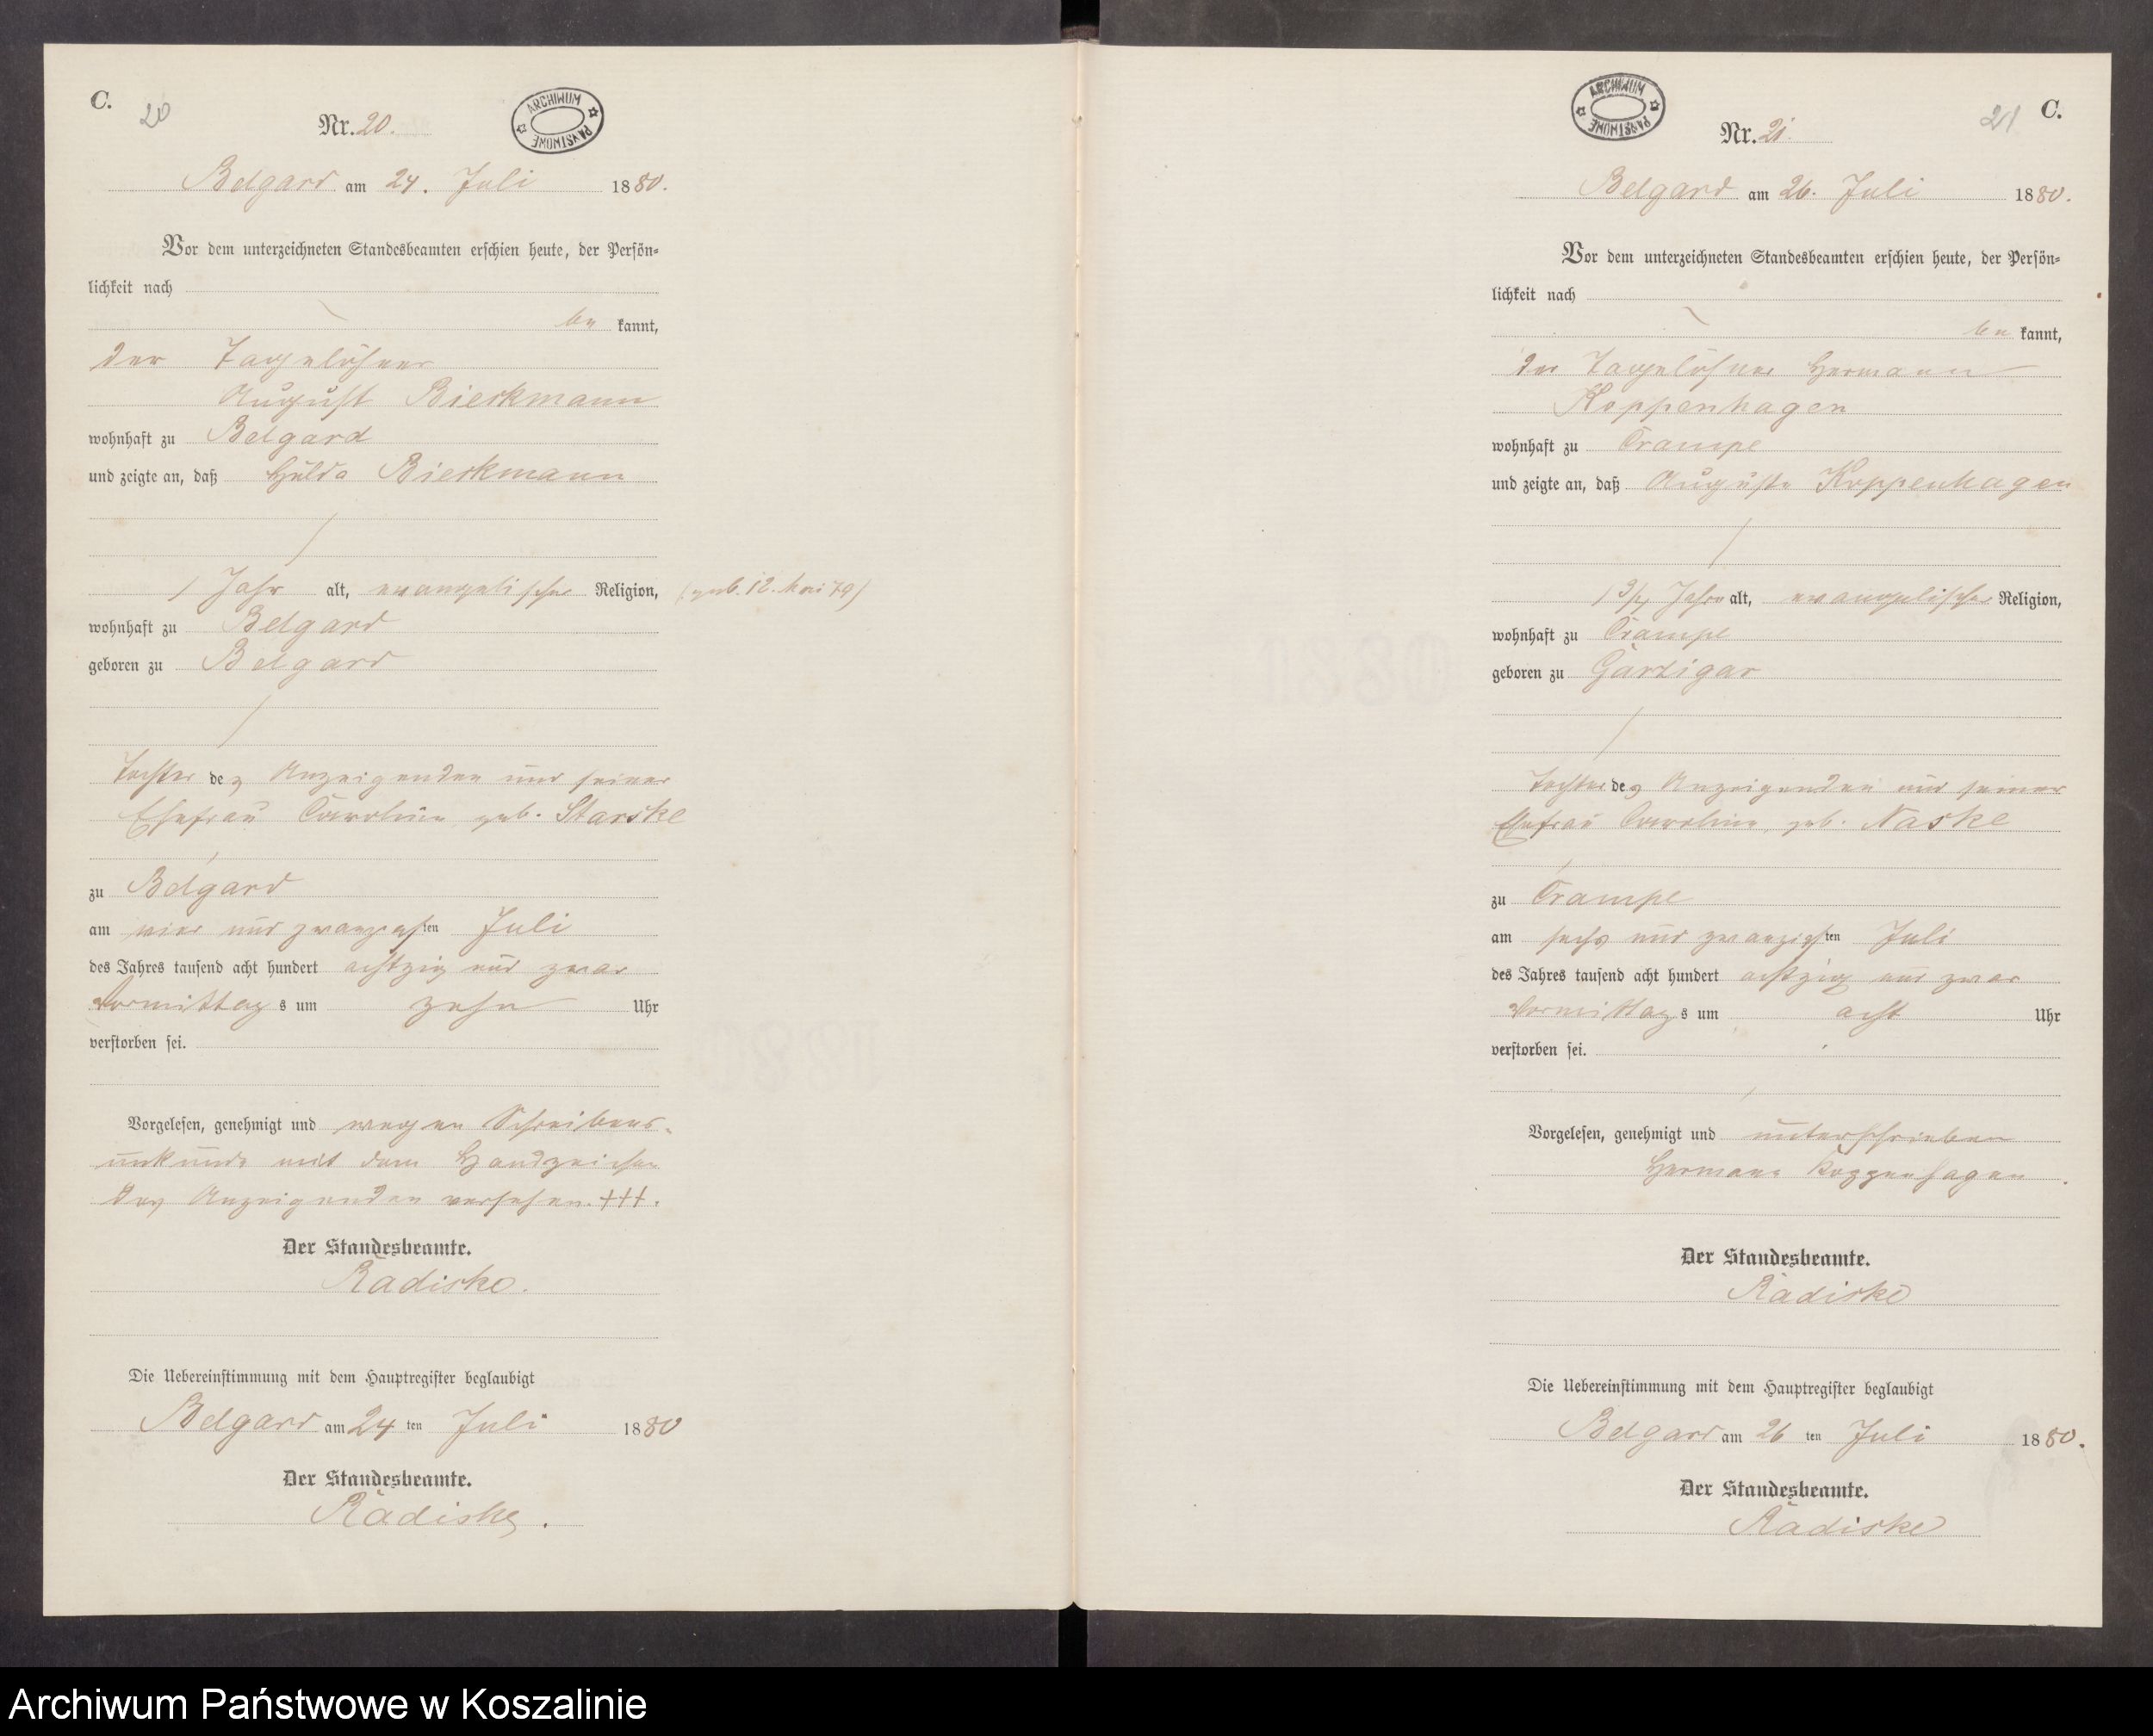 C.
20
Nr. 20.
ARCHIWUM PAŃSTWOWE
Belgard am 24. Juli 1880.
Vor dem unterzeichneten Standesbeamten erschien heute, der Persön-
lichkeit nach
be kannt,
der Tagelöhner
August Bieckmann
wohnhaft zu Belgard
und zeigte an, daß Hulda Bieckmann
1 Jahr alt, evangelischer Religion, (geb. 12. Mai 79)
wohnhaft zu Belgard
geboren zu Belgard
Tochter des Anzeigenden und seiner
Ehefrau Caroline geb. Starske
zu Belgard
am vier und zwanzigsten Juli
des Jahres tausend acht hundert achtzig und zwar
Vormittags um zehn Uhr
verstorben sei.
Vorgelesen, genehmigt und wegen Schreibens-
unkunde mit dem Handzeichen
des Anzeigenden versehen. +++.
Der Standesbeamte.
Radiske.
Die Uebereinstimmung mit dem Hauptregister beglaubigt
Belgard am 24 ten Juli 1880
Der Standesbeamte.
Radiske.
ARCHIWUM PAŃSTWOWE
21 C.
Nr. 21.
Belgard am 26. Juli 1880.
Vor dem unterzeichneten Standesbeamten erschien heute, der Persön-
lichkeit nach
be kannt,
der Tagelöhner Hermann
Koppenhagen
wohnhaft zu Crampe
und zeigte an, daß Auguste Koppenhagen
1 3/4 Jahre alt, evangelischer Religion,
wohnhaft zu Crampe
geboren zu Garzigar
Tochter des Anzeigenden und seiner
Ehefrau Caroline, geb. Naske
zu Crampe
am sechs und zwanzigsten Juli
des Jahres tausend acht hundert achtzig und zwar
Vormittags um acht Uhr
verstorben sei.
Vorgelesen, genehmigt und unterschrieben
Hermann Koppenhagen.
Der Standesbeamte.
Radiske
Die Uebereinstimmung mit dem Hauptregister beglaubigt
Belgard am 26 ten Juli 1880.
Der Standesbeamte.
Radiske
Archiwum Państwowe w Koszalinie